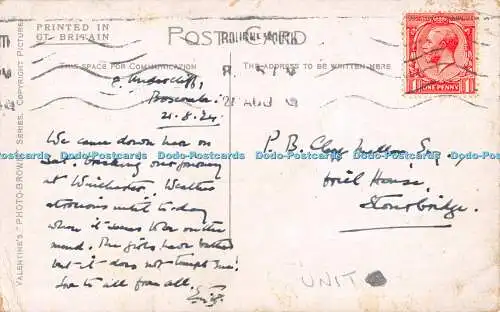 PRINTED IN
GT. BRITAIN
POST CARD
BOURNEMOUTH
THIS SPACE FOR COMMUNICATION
THE ADDRESS TO BE WRITTEN HERE
21 AUG
ONE PENNY
VALENTINE'S "PHOTO-BROWN" SERIES. COPYRIGHT PICTURE
Undercliff,
Boscombe.
21.8.24.
We came down here on
Sat. breaking our journey
at Winchester. Weather
atrocious until to-day
when it seems to be on the
mend. The girls have bathed
but it does not tempt me!
Love to all from all.
P. B.
House,
Stourbridge.
UNIT
Dodo-Postcards